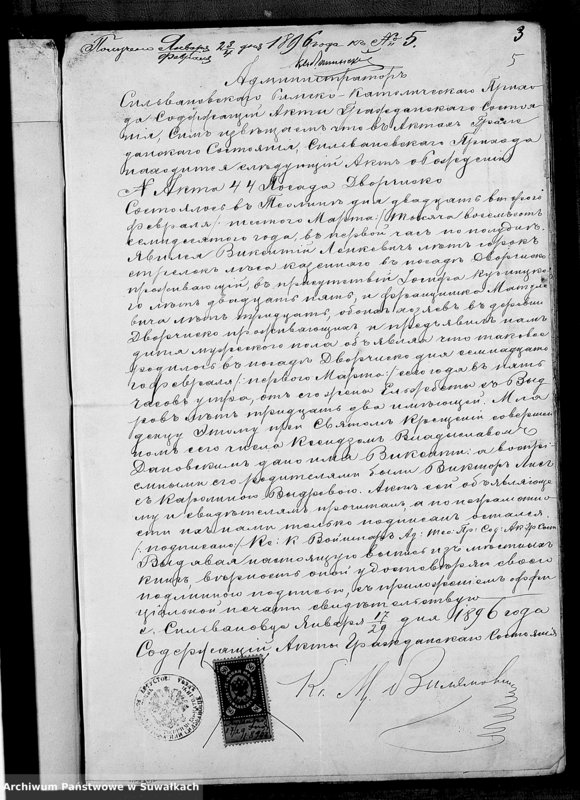 3
Получено Января 23/Февраля 4 дня 1896 года къ № 5.
5
Администраторъ
Сильвановскаго Римско-Католическаго Прихо-
да Содержащій Акты Гражданскаго Состоя-
нія, Симъ извѣщаетъ что въ Актахъ Граж-
данскаго Состоянія, Сильвановскаго Прихода
находится слѣдующій Актъ о рожденіи
N Акта 44 Посада Дворчиско
Состоялось въ Теолинѣ дня двадцать втораго
Февраля /: шестого Марта :/ тысяча восемьсотъ
семидесятаго года, въ первой часъ по полудни.
Явился Викентій лѣтъ сорокъ
стрѣлокъ лѣса казеннаго въ посадѣ Дворчиско
проживающій, въ присутствіи Іосифа
го лѣтъ двадцать пять, и Францишка Матуле-
вича лѣтъ тридцать, обоихъ хозяевъ въ деревни
Дворчиско проживающихъ, и предъявилъ намъ
дитя мужескаго пола объявляя что таковое
родилось въ посадѣ Дворчиско дня семнадцато-
го Февраля /: перваго Марта :/ сего года въ пять
часовъ утра, отъ его жены Ельжбеты съ Выд-
ровъ лѣтъ тридцать два имѣющей. Мла-
денцу этому при Святомъ Крещеніи совершен-
номъ сего числа Ксендзомъ Владиславомъ
Дановскимъ дано имя Викентій а воспрі-
емными его родителями были Викторъ
съ Каролиною Выдровою. Актъ сей объявляюще-
му и свидѣтелямъ прочитанъ, а по неграмотно-
сти ихъ нами только подписанъ остался.
/: подписано :/ Кс: К Войшнаръ Ад: Тео: Пр: Сод: Ак: Гр: Сост:
Выдавая настоящую выпись изъ мѣстныхъ
книгъ, вѣрность оной удостовѣряя своею
подлинною подписью, съ приложеніемъ оффи-
ціальной печати свидѣтельствую
с. Сильвановце Января 17/29 дня 1896 года
Содержащій Акты Гражданскаго Состоянія
Кс. М.
17/29
1896
Archiwum Państwowe w Suwałkach